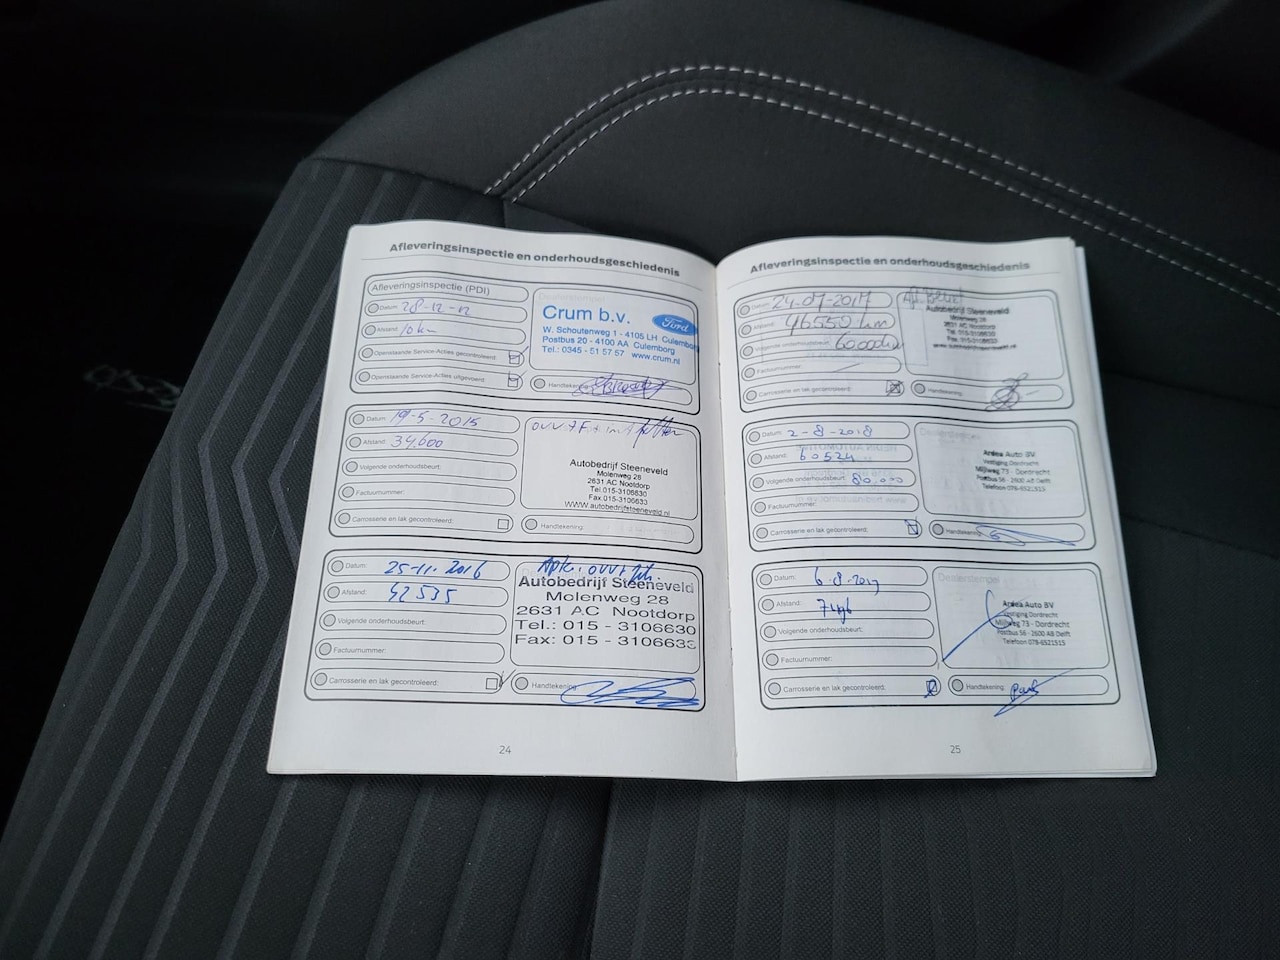 Afleveringsinspectie en onderhoudsgeschiedenis
Afleveringsinspectie (PDI)
Datum: 28-12-12
Afstand: 10 km
Openstaande Service-Acties gecontroleerd:
Openstaande Service-Acties uitgevoerd:
Crum b.v.
Ford
W. Schoutenweg 1 - 4105 LH Culemborg
Postbus 20 - 4100 AA Culemborg
Tel.: 0345 - 51 57 57 www.crum.nl
Handtekening:
Datum: 19-5-2015
Afstand: 34.600
Volgende onderhoudsbeurt:
Factuurnummer:
Carrosserie en lak gecontroleerd:
Autobedrijf Steeneveld
Molenweg 28
2631 AC Nootdorp
Tel.015-3106630
Fax 015-3106633
WWW.autobedrijfsteeneveld.nl
Handtekening:
Datum: 25-11-2016
Afstand: 42535
Volgende onderhoudsbeurt:
Factuurnummer:
Carrosserie en lak gecontroleerd:
Autobedrijf Steeneveld
Molenweg 28
2631 AC Nootdorp
Tel.: 015 - 3106630
Fax: 015 - 3106633
Handtekening:
24
Afleveringsinspectie en onderhoudsgeschiedenis
Datum: 24-07-2017
Afstand: 46550 km
Volgende onderhoudsbeurt: 60000 km
Factuurnummer:
Carrosserie en lak gecontroleerd:
Autobedrijf Steeneveld
Molenweg 28
2631 AC Nootdorp
Tel. 015-3106630
Fax: 015-3106633
Handtekening:
Datum: 2-8-2018
Afstand: 60524
Volgende onderhoudsbeurt: 80.000
Factuurnummer:
Carrosserie en lak gecontroleerd:
Dealerstempel
Ardea Auto BV
Vestiging Dordrecht
Mijlweg 73 - Dordrecht
Postbus 56 - 2600 AB Delft
Telefoon 078-6521515
Handtekening:
Datum: 6-8-2019
Afstand:
Volgende onderhoudsbeurt:
Factuurnummer:
Carrosserie en lak gecontroleerd:
Dealerstempel
Ardea Auto BV
Vestiging Dordrecht
Mijlweg 73 - Dordrecht
Postbus 56 - 2600 AB Delft
Telefoon 078-6521515
Handtekening:
25